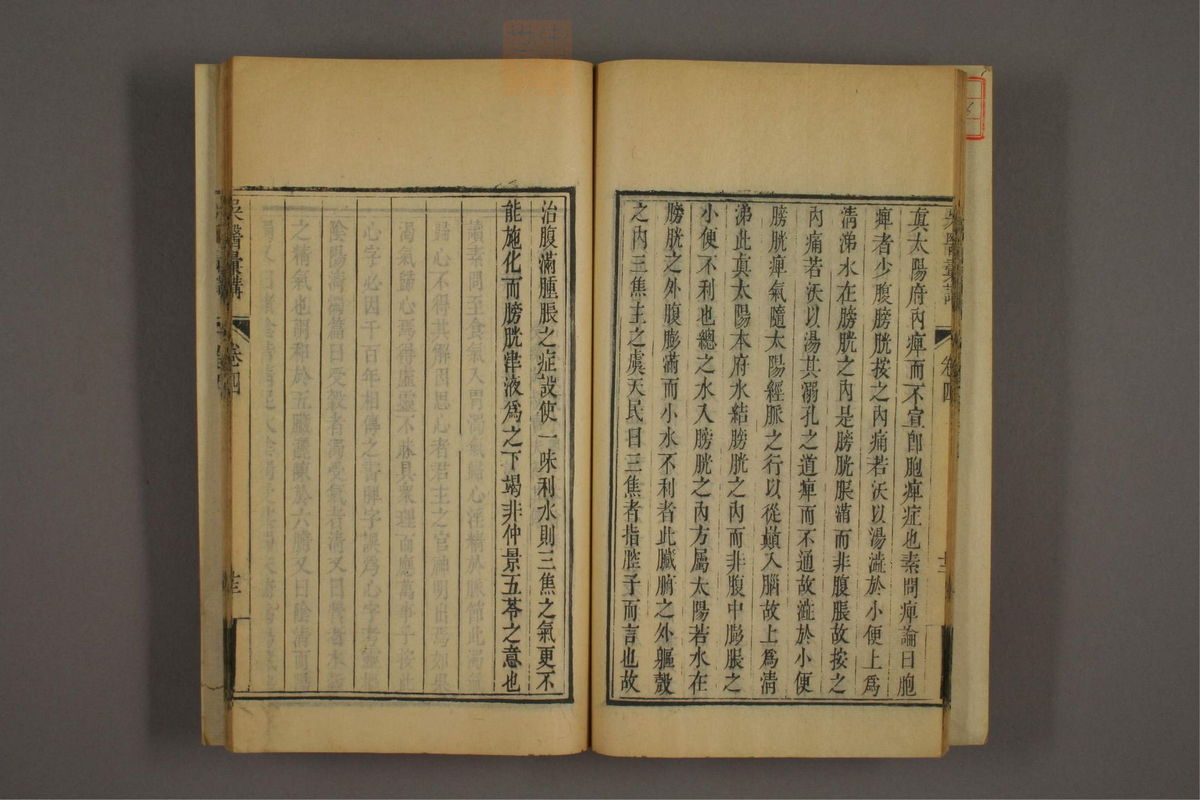 真太陽府內痺而不宣卽胞痺症也素問痺論曰胞
痺者少腹膀胱按之內痛若沃以湯澁於小便上爲
淸涕水在膀胱之內是膀胱脹滿而非腹脹故按之
內痛若沃以湯其溺孔之道痺而不通故澁於小便
膀胱痺氣隨太陽經脈之行以從巔入腦故上爲淸
涕此真太陽本府水結膀胱之內而非腹中膨脹之
小便不利也總之水入膀胱之內方屬太陽若水在
膀胱之外腹膨滿而小水不利者此臟腑之外軀殼
之內三焦主之虞天民曰三焦者指腔子而言也故
治腹滿腫脹之症設使一味利水則三焦之氣更不
能施化而膀胱津液爲之下竭非仲景五苓之意也
吳醫彚講
卷四